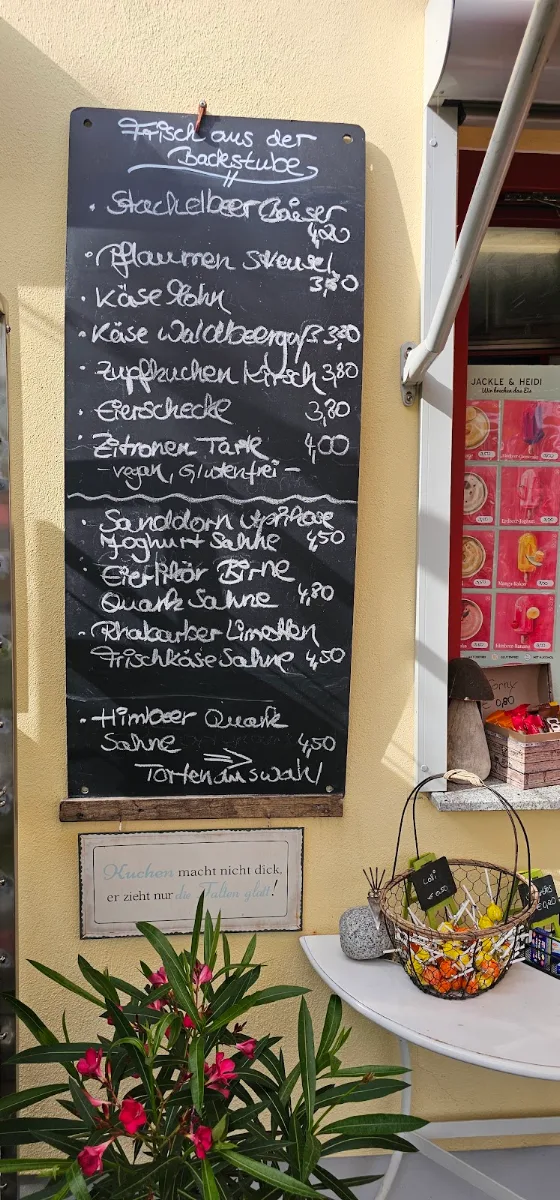 Frisch aus der
Backstube
· Stachelbeer Baiser
4,20
· Pflaumen Streusel
3,80
· Käse Mohn
· Käse Waldbeerguß 3,80
· Zupfkuchen Kirsch 3,80
· Eierschecke 3,80
· Zitronen Tarte 4,00
- vegan, Glutenfrei -
· Sanddorn Aprikose
Joghurt Sahne 4,50
· Eierlikör Birne
Quark Sahne 4,80
· Rhabarber Limetten
Frischkäse Sahne 4,50
· Himbeer Quark
Sahne 4,50
Tortenauswahl
Kuchen macht nicht dick,
er zieht nur die Falten glatt!
JACKLE & HEIDI
Wir brechen das Eis
0,80
Lolli